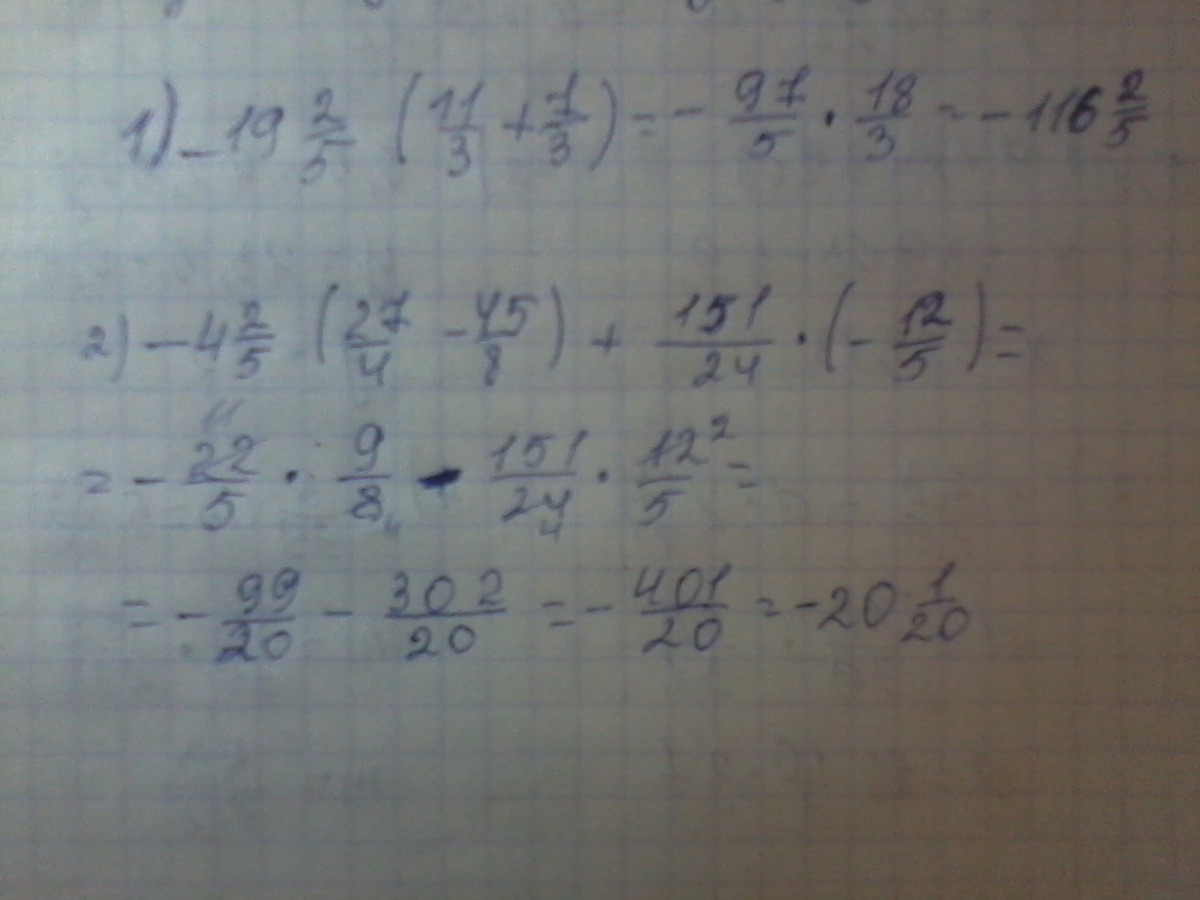 1) -19 2/5 (11/3 + 7/3) = - 97/5 · 18/3 = -116 2/5
2) -4 2/5 (27/4 - 45/8) + 151/24 · (- 12/5) =
= - 22/5 · 9/8 - 151/24 · 12/5 =
= - 99/20 - 302/20 = - 401/20 = -20 1/20